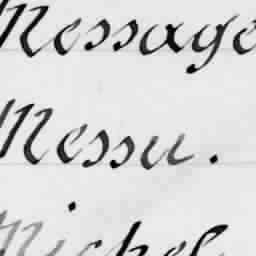 Message
Messu.
Michel